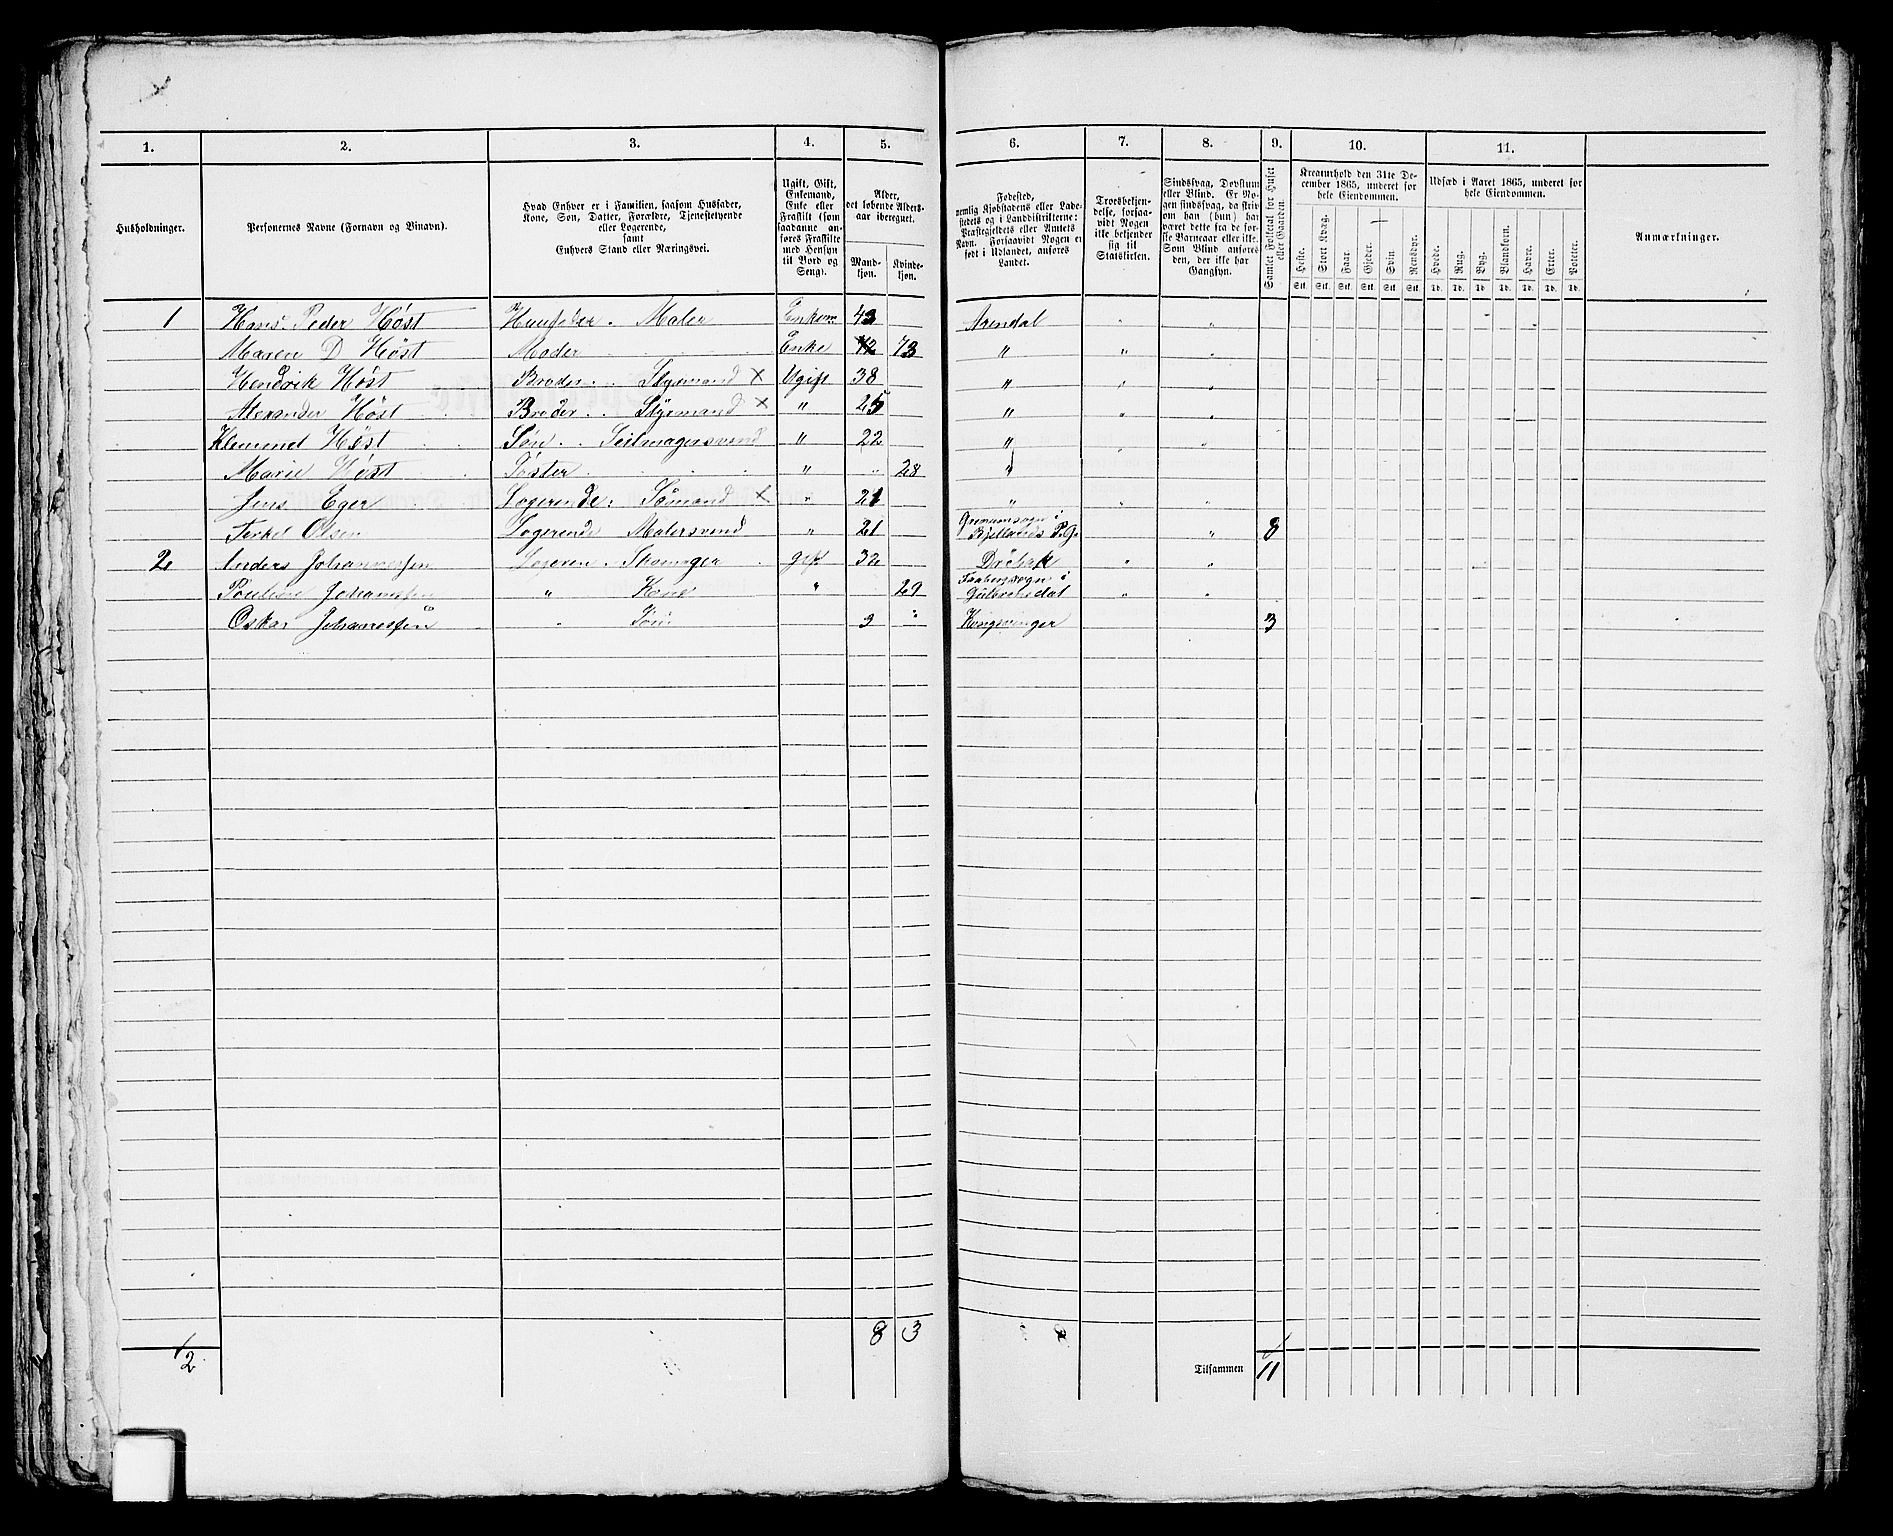 1. 2. 3. 4. 5. 6. 7. 8. 9. 10. 11.
Husholdninger.
Personernes Navne (Fornavn og Binavn).
Hvad Enhver er i Familien, saasom Husfader,
Kone, Søn, Datter, Forældre, Tjenestetyende
eller Logerende,
samt
Enhvers Stand eller Næringsvei.
Ugift, Gift,
Enkemand,
Enke eller
Fraskilt (som
saadanne an-
føres Fraskilte
med Hensyn
til Bord og
Seng).
Alder,
det løbende Alders-
aar iberegnet.
Mand-
kjøn.
Kvinde-
kjøn.
Fødested,
nemlig Kjøbstadens eller Lade-
stedets og i Landdistrikterne:
Præstegjeldets eller Amtets
Navn. Forsaavidt Nogen er
født i Udlandet, anføres
Landet.
Troesbekjen-
delse, forsaa-
vidt Nogen
ikke bekjender
sig til
Statskirken.
Sindssvag, Døvstum
eller Blind. Er No-
gen sindssvag, da skriv
om han (hun) har
været dette fra de før-
ste Barneaar eller ikke.
Som Blind anføres
den, der ikke har
Gangsyn.
Samlet Folketal for Huset
eller Gaarden.
Kreaturhold den 31te De-
cember 1865, underet for
hele Eiendommen.
Heste. Stort Kvæg. Faar. Gjeder. Svin. Rensdyr.
Stk. Stk. Stk. Stk. Stk. Stk.
Udsæd i Aaret 1865, underet for
hele Eiendommen.
Hvede. Rug. Byg. Blandkorn. Havre. Erter. Poteter.
Td. Td. Td. Td. Td. Td. Td.
Anmærkninger.
1 Hans Peder Höst Huusfader. Maler Enkem 43 Arendal " "
Maren D Höst Moder Enke 73 " " "
Hendrik Höst Broder. Styrmand X Ugift 38 " " "
Alexander Höst Broder. Styrmand X " 25 " " "
Klemend Höst Søn. Seilmagersvend " 22 " " "
Marie Höst " 28 "
Jens Eger Logerende. Sömand X " 21 " " "
Terkel Olsen Logerende Malersvend " 21 Bjellands P.G. " 8
2 Anders Johannessen gift 32 Dröbak " "
Johannessen " Kone " 29 Gulbrandsdal " "
Oskar Johannessen " Sön 3 " Kongsvinger 3
8 3
2
Tilsammen 11